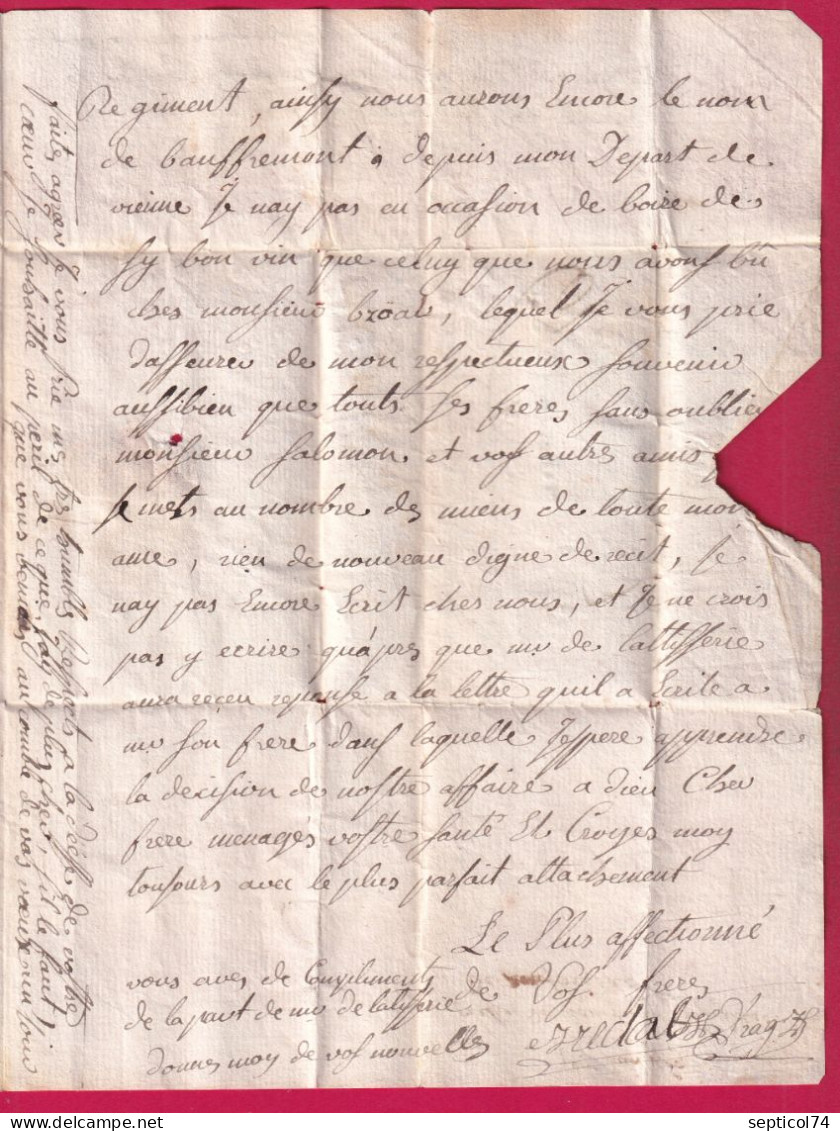 Regiment, ainsy nous aurons Encore le nom
de bauffremont, depuis mon Depart de
vienne Je nay pas eu occasion de boire de
sy bon vin que celuy que nous avons bû
ches monsieur, lequel Je vous prie
dasseurer de mon respectueux souvenir
aussibien que touts Ses freres sans oublier
monsieur salomon, et vos autres amis
Je mets au nombre des miens de toute mon
ame, rien de nouveau digne de recit, Je
nay pas Encore Ecrit ches nous, et Je ne crois
pas y ecrire qu'apres que mr de lattisserie
aura receu reponse a la lettre quil a Ecrite a
mr son frere dans laquelle Jespere apprendre
la decision de nostre affaire a dieu Cher
frere menagés vostre santé Et Croyes moy
toujours avec le plus parfait attachement
Le Plus affectionné
de Vos freres
vous aves de Compliments
de la part de mr de latisserie
donnes moy de vos nouvelles
faites agréer Je vous prie mes tres humbles respects a la de vostre
coeur Je au peril de ce que Jay de plus cher, sil le faut,
que vous au comble de vos voeux
septicol74